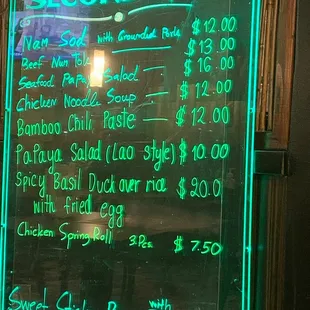 Nam Sod with Grounded Pork $12.00
Beef Nam Tok $13.00
Seafood Papaya Salad — $16.00
Chicken Noodle Soup — $12.00
Bamboo Chili Paste — $12.00
Papaya Salad (Lao style) $10.00
Spicy Basil Duck over rice $20.0
with fried egg
Chicken Spring Roll 3.Pcs $7.50
Sweet with